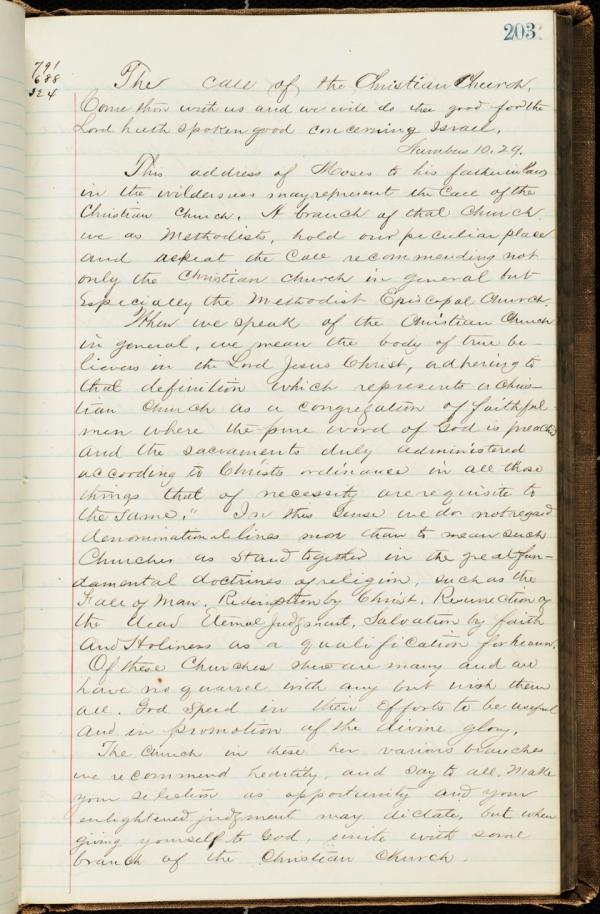 203
791
688
324
The Call of the Christian Church.
Come thou with us and we will do thee good for the
Lord hath spoken good concerning Israel.
Numbers 10.29.
This address of Moses to his father in law
in the wilderness may represent the Call of the
Christian Church. A branch of that Church
we as Methodists, hold our peculiar place
and repeat the Call recommending not
only the Christian church in general but
Especially the Methodist Episcopal Church.
When we speak of the Christian Church
in general, we mean the body of true be-
lievers in the Lord Jesus Christ, adhering to
that definition which represents a Chris-
tian Church as a congregation of faithful
men where the pure word of God is preached
and the sacraments duly administered
according to Christs ordinance in all those
things that of necessity are requisite to
the same." In this sense we do not regard
denominational lines more than to mean such
Churches as stand together in the great fun-
damental doctrines of religion, such as the
Fall of Man. Redemption by Christ. Resurrection of
the dead Eternal Judgment. Salvation by faith
And Holiness as a qualification for heaven.
Of these Churches there are many and we
have no quarrel with any but wish them
all. God Speed in their Efforts to be useful
and in promotion of the divine glory.
The Church in these her various branches
we recommend heartily, and say to all. Make
your selection as opportunity and your
enlightened judgment may dictate, but when
giving yourself to God, unite with some
branch of the Christian Church.